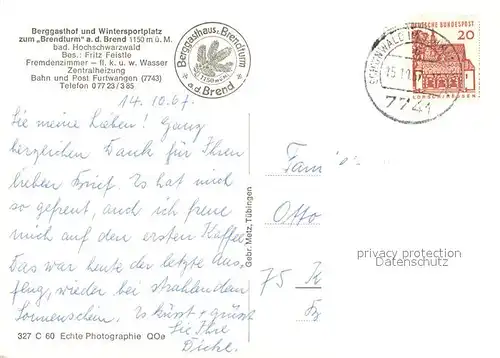 Berggasthof und Wintersportplatz
zum „Brendturm" a. d. Brend 1150 m ü. M.
bad. Hochschwarzwald
Bes.: Fritz Feistle
Fremdenzimmer – fl. k. u. w. Wasser
Zentralheizung
Bahn und Post Furtwangen (7743)
Telefon 0 77 23 / 3 85
Berggasthaus z. Brendturm
1150 m ü. M.
a. d. Brend
DEUTSCHE BUNDESPOST
20
LORSCH/HESSEN
SCHÖNWALD IM
7741
14.10.67.
Sie meine Lieben! Ganz
herzlichen Dank für Ihren
lieben Brief. Es hat mich
so gefreut, auch ich freue
mich auf den ersten Kaffee
Das war heute der letzte Aus-
flug, wieder bei strahlendem
Sonnenschein. Es küsst + grüsst
Sie Ihre
Fam
Otto
75
Gebr. Metz, Tübingen
privacy protection
Datenschutz
327 C 60 Echte Photographie QOa